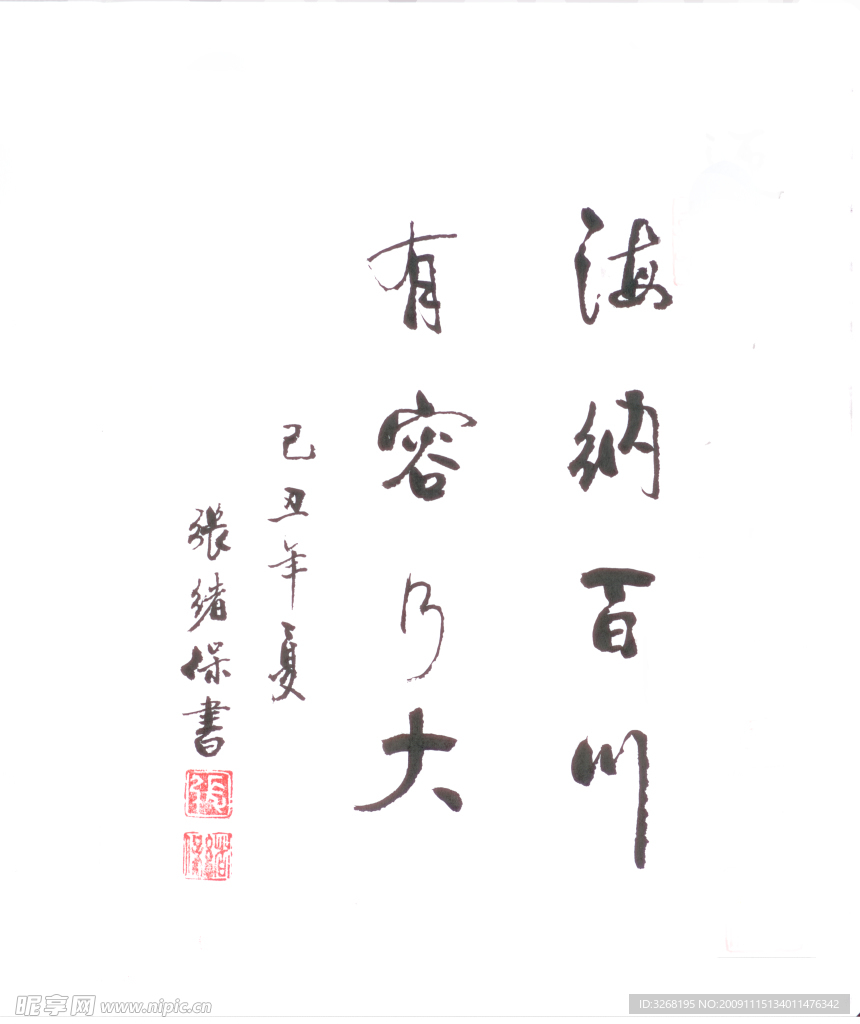 海納百川
有容乃大
己丑年夏
張緒保書
張
緒保
昵享网 www.nipic.cn
ID:3268195 NO:20091115134011476342